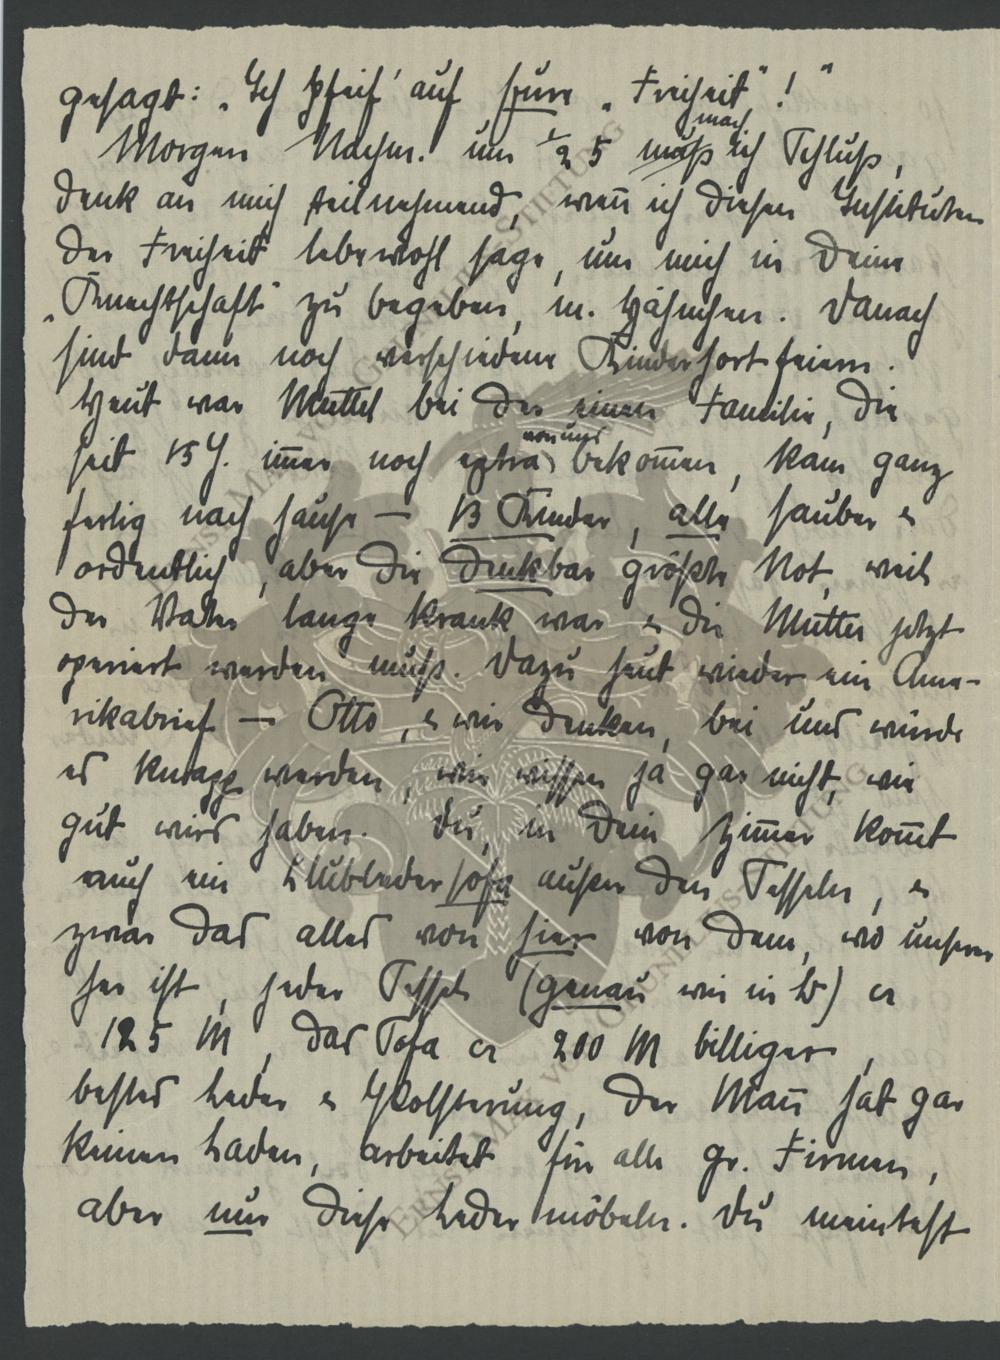 gesagt: „Ich pfeif' auf Eure „Freiheit“!“
Morgen Nachm. um ½ 5 mach ich Schluß,
denk an mich teilnehmend, wenn ich diesen Instituten
der Freiheit lebewohl sage, um mich in Deine
„Knechtschaft“ zu begeben, m. Hähnchen. Danach
sind dann noch verschiedene Kinderhortfeiern.
Heut war Muttel bei der einen Familie, die
seit 15 J. immer noch extra von uns bekommen, kam ganz
fertig nach Hause – 13 Kinder, alle sauber u
ordentlich, aber die denkbar größte Not, weil
der Vater lange krank war u die Mutter jetzt
operiert werden muß. Dazu heut wieder ein Ame-
rikabrief – Otto, u wir denken, bei uns würde
es knapp werden, wir wissen ja gar nicht, wie
gut wirs haben. Du, in Dein Zimmer kommt
auch ein Klubledersofa außer den Sesseln, u
zwar das alles von hier von dem, wo unseres
her ist, jeder Sessel (genau wie in B)
125 M, das Sofa 200 M billiger,
bestes Leder u Polsterung, der Mann hat gar
keinen Laden, arbeitet für alle gr. Firmen,
aber nur diese Ledermöbeln. Du meintest
ERNST MAY VON GRÜNELIUS STIFTUNG